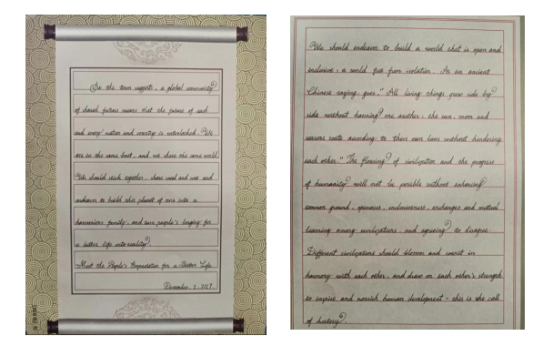 As the term suggests, a global community
of shared future means that the future of each
and every nation and country is interlocked. We
are in the same boat, and we share the same world.
We should stick together, share weal and woe and
endeavor to build this planet of ours into a
harmonious family, and turn people's longing for
a better life into reality.
Meet the People's Expectation for a Better Life
December 1, 2017
We should endeavor to build a world that is open and
inclusive, a world free from isolation. As an ancient
Chinese saying goes, "All living things grow side by
side without harming one another; the sun, moon and
seasons rotate according to their own laws without hindering
each other." The flowing of civilization and the progress
of humanity will not be possible without enhancing
common ground, openness, inclusiveness, exchanges and mutual
learning among civilizations and agreeing to disagree.
Different civilizations should bloom and coexist in
harmony with each other, and draw on each other's strength
to inspire and nourish human development - this is the call
of history.